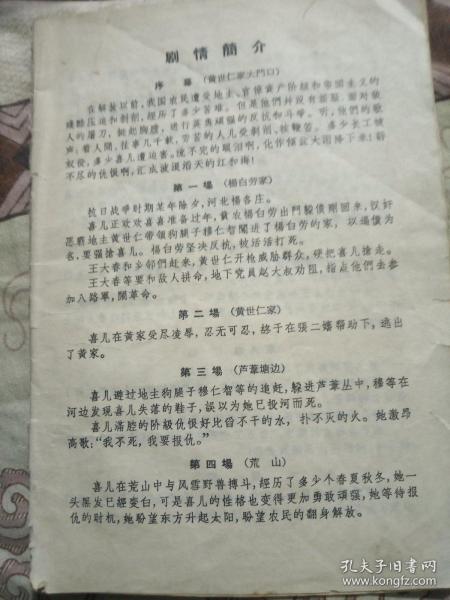 剧情簡介
序幕（黄世仁家大門口）
在解放以前，我国农民遭受地主、官僚資产阶級和帝国主义的
残酷压迫和剝削，經历了多少苦难。但是他們并没有
人的屠刀，挺起胸膛，进行英勇頑强的反抗和斗爭。听，他們的歌
声：看人間，往事几千載，劳苦的人儿受剝削，挨鞭笞。多少长工被
奴役，多少喜儿遭迫害。流不完的眼泪啊，化作傾盆大雨降下来！訴
不尽的仇恨啊，汇成波浪滔天的江和海！
第一場（楊白劳家）
抗日战爭时期某年除夕，河北楊各庄。
喜儿正欢欢喜喜准备过年，貧农楊白劳出門躲債剛回来，汉奸
恶霸地主黄世仁带領狗腿子穆仁智等闖进了楊白劳的家，以逼債为
名，要强搶喜儿。楊白劳坚决反抗，被活活打死。
王大春和乡邻們赶来，黄世仁开枪威胁群众，硬把喜儿搶走。
王大春等要和敌人拼命，地下党員赵大叔劝阻，指点他們去参
加八路軍，鬧革命。
第二場（黄世仁家）
喜儿在黄家受尽凌辱，忍无可忍，終于在張二嬸帮助下，逃出
了黄家。
第三場（芦葦塘边）
喜儿避过地主狗腿子穆仁智等的追赶，躲进芦葦丛中，穆等在
河边发现喜儿失落的鞋子，誤以为她已投河而死。
喜儿滿腔的阶級仇恨好比舀不干的水，扑不灭的火。她激昂
高歌：“我不死，我要报仇。”
第四場（荒山）
喜儿在荒山中与风雪野兽搏斗，經历了多少个春夏秋冬，她一
头黑发已經变白，可是喜儿的性格也变得更加勇敢頑强，她等待报
仇的时机，她盼望东方升起太阳，盼望农民的翻身解放。
孔夫子旧书网
www.kongfz.com